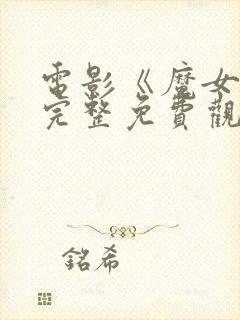 電影《魔女
完整免費觀
銘希